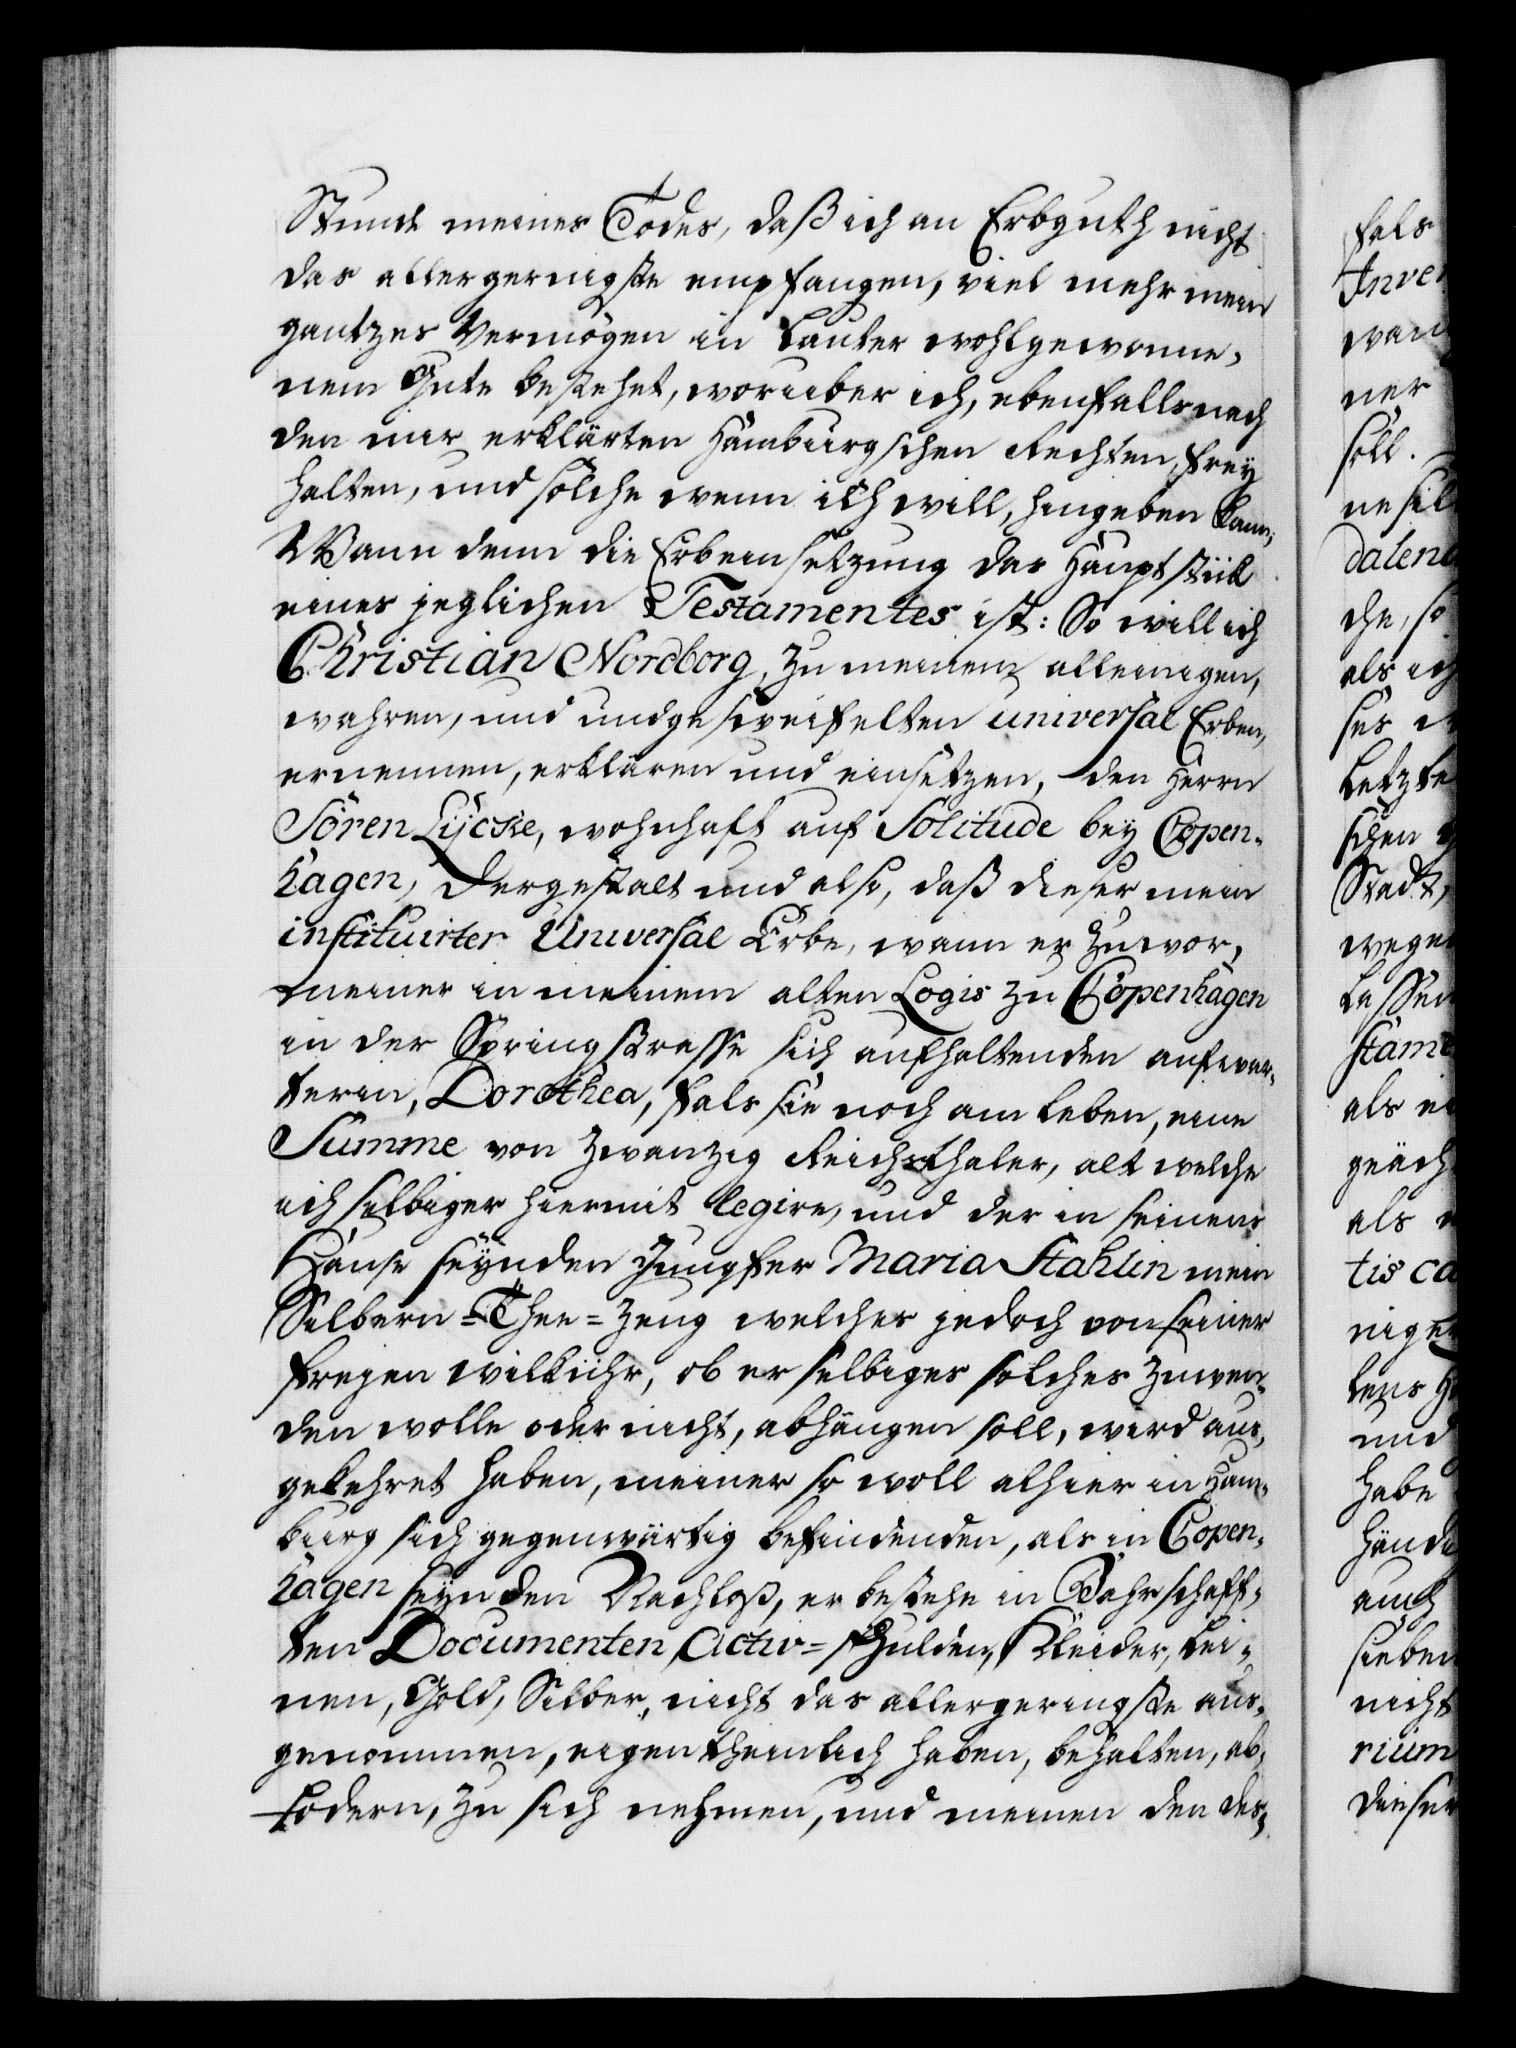 Stunde meines Todes, daß ich an Erbguth nicht
das allergeringste empfangen, viel mehr mein
gantzes Vermögen in lauter wohlgewonne„
nem Gute bestehet, worüber ich, ebenfalls nach
den mir erklärten Hamburgschen Rechten, frey
halten, und solche wenn ich will, hingeben kann;
Wann denn die Erbeinsetzung das Hauptstük
eines jeglichen Testamentes ist: So will ich
Christian Nordborg, zu meinem alleinigen,
wahren, und undgezweifelten universal Erben,
ernennen, erklären und einsetzen, den Herrn
Sören Lycke, wohnhaft auf Solitude bey Copen„
hagen, dergestalt und also, daß dieser mein
instituirter Universal Erbe, wann er zuvor,
meiner in meinem alten Logis zu Copenhagen
in der Springstrasse sich aufhaltenden aufwar„
terin, Dorothea, fals sie noch am Leben, eine
Summe von zwanzig Reichsthaler, als welche
ich selbiger hiermit legire, und der in seinem
Hause seynden Jungfer Maria Stahlin mein
Silbern=Thee=Zeug welches jedoch von seiner
freyen willkühr, ob er selbiges solches zuwen„
den wolle oder nicht, abhängen soll, wird aus„
gekehret haben, meiner so woll alhier in Ham„
burg sich gegenwärtig befindenden, als in Copen„
hagen seynden Nachlaß, er bestehe in Bahrschaff„
ten Documenten, Activ=schulden, Kleider, Lei„
nen, Gold, Silber, nicht das allergeringste aus„
genommen, eigenthümlich haben, behalten, ab„
fodern, zu sich nehmen, und meinen den des„
fals
ner
soll.
che, so
als ich
letzte
schen
Stadt,
als
und
habe
auch
nicht
rium
dieser